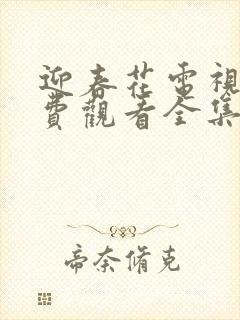 迎春花電視
費觀看全集
帝奈脩克